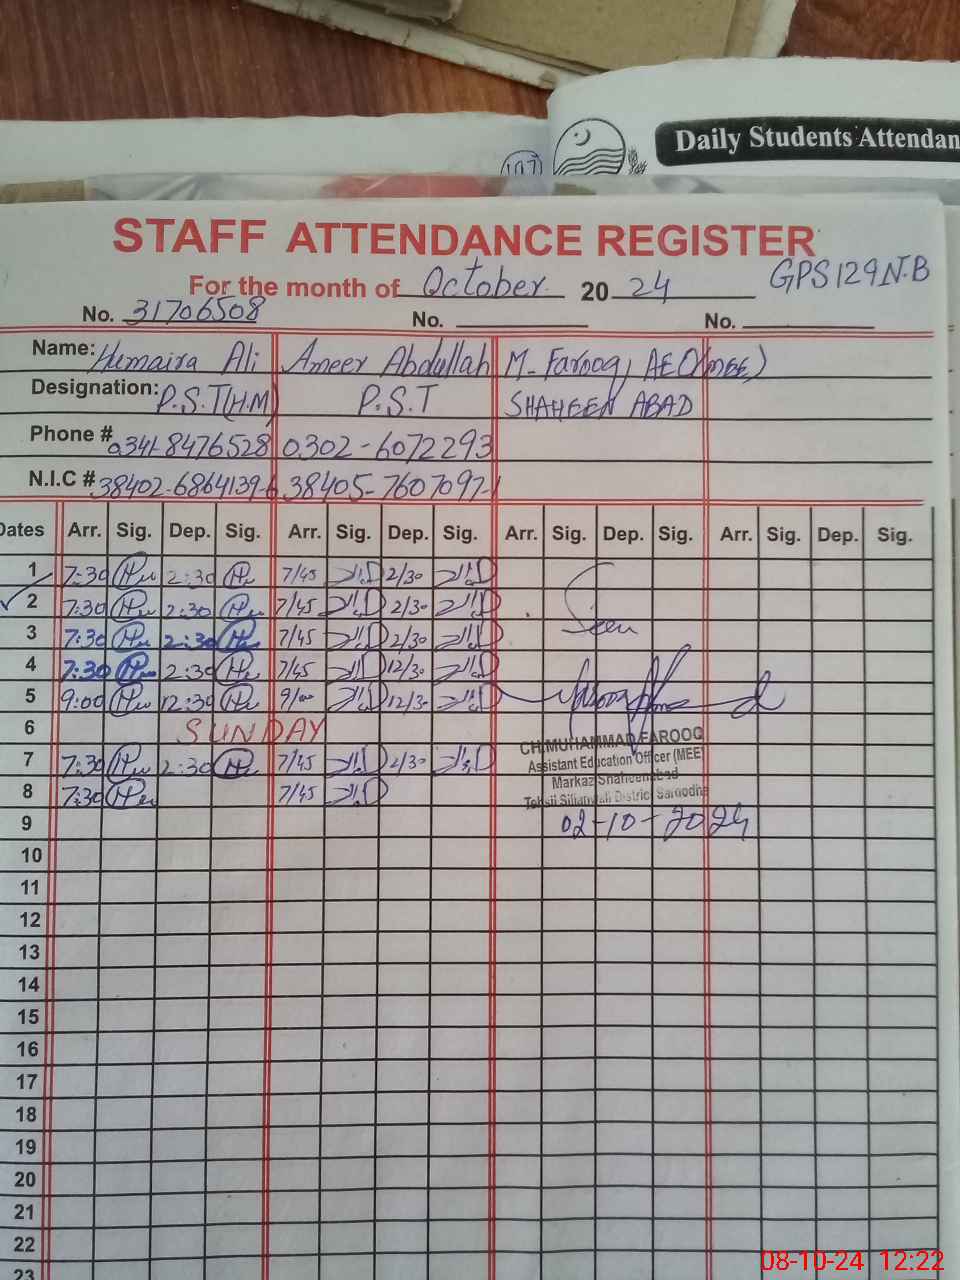 107
Daily Students Attendan
STAFF ATTENDANCE REGISTER
For the month of October 2024 GPS 129 N.B
No. 31706508 No. No.
Name: Humaira Ali Ameer Abdullah M. Farooq, AEO(MEE)
Designation: P.S.T(H.M) P.S.T SHAHEEN ABAD
Phone # 0341-8476528 0302-6072293
N.I.C # 38402-6864139-6 38405-7607097-1
Dates Arr. Sig. Dep. Sig. Arr. Sig. Dep. Sig. Arr. Sig. Dep. Sig. Arr. Sig. Dep. Sig.
1 7:30 2:30 7/45 2/30
2 7:30 2:30 7/45 2/30
3 7:30 2:30 7/45 2/30 Seen
4 7:30 2:30 7/45 12/30
5 9:00 12:30 9/00 12/30
6 SUNDAY
CH.MUHAMMAD FAROOQ
7 7:30 2:30 7/45 2/30 Assistant Education Officer (MEE)
Markaz Shaheenabad
8 7:30 7/45 Tehsil Sillanwali District Sargodha
9 02-10-2024
10
11
12
13
14
15
16
17
18
19
20
21
22
23
08-10-24 12:22